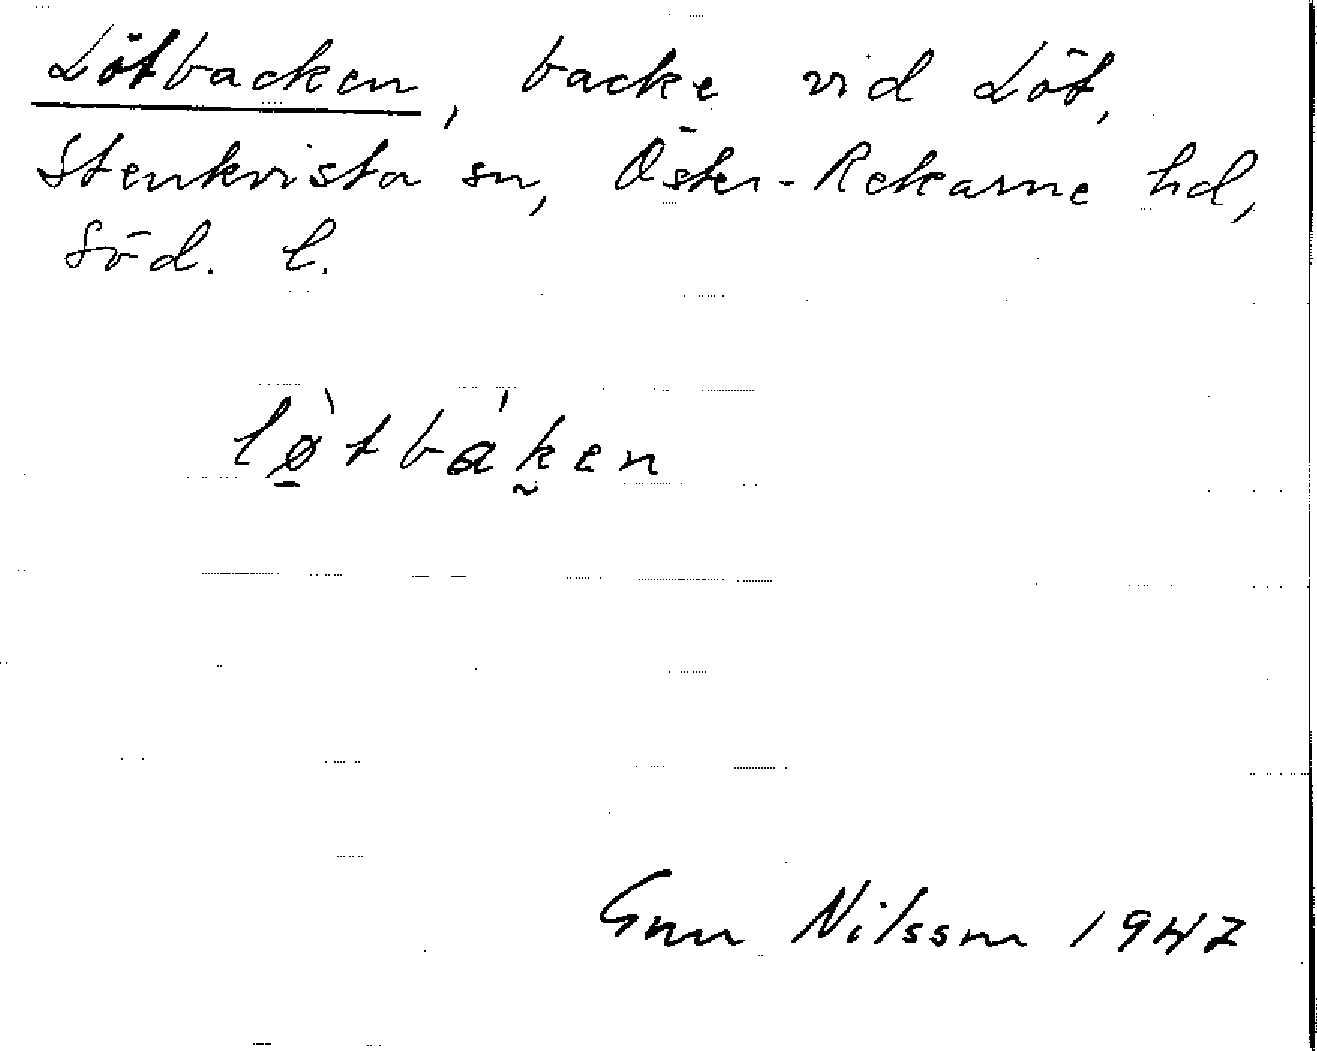 Lötbacken, backe vid Löt,
Stenkvista sn, Öster-Rekarne hd,
Söd. l.
lø̠̀tbák̰en
Gun Nilsson 1947